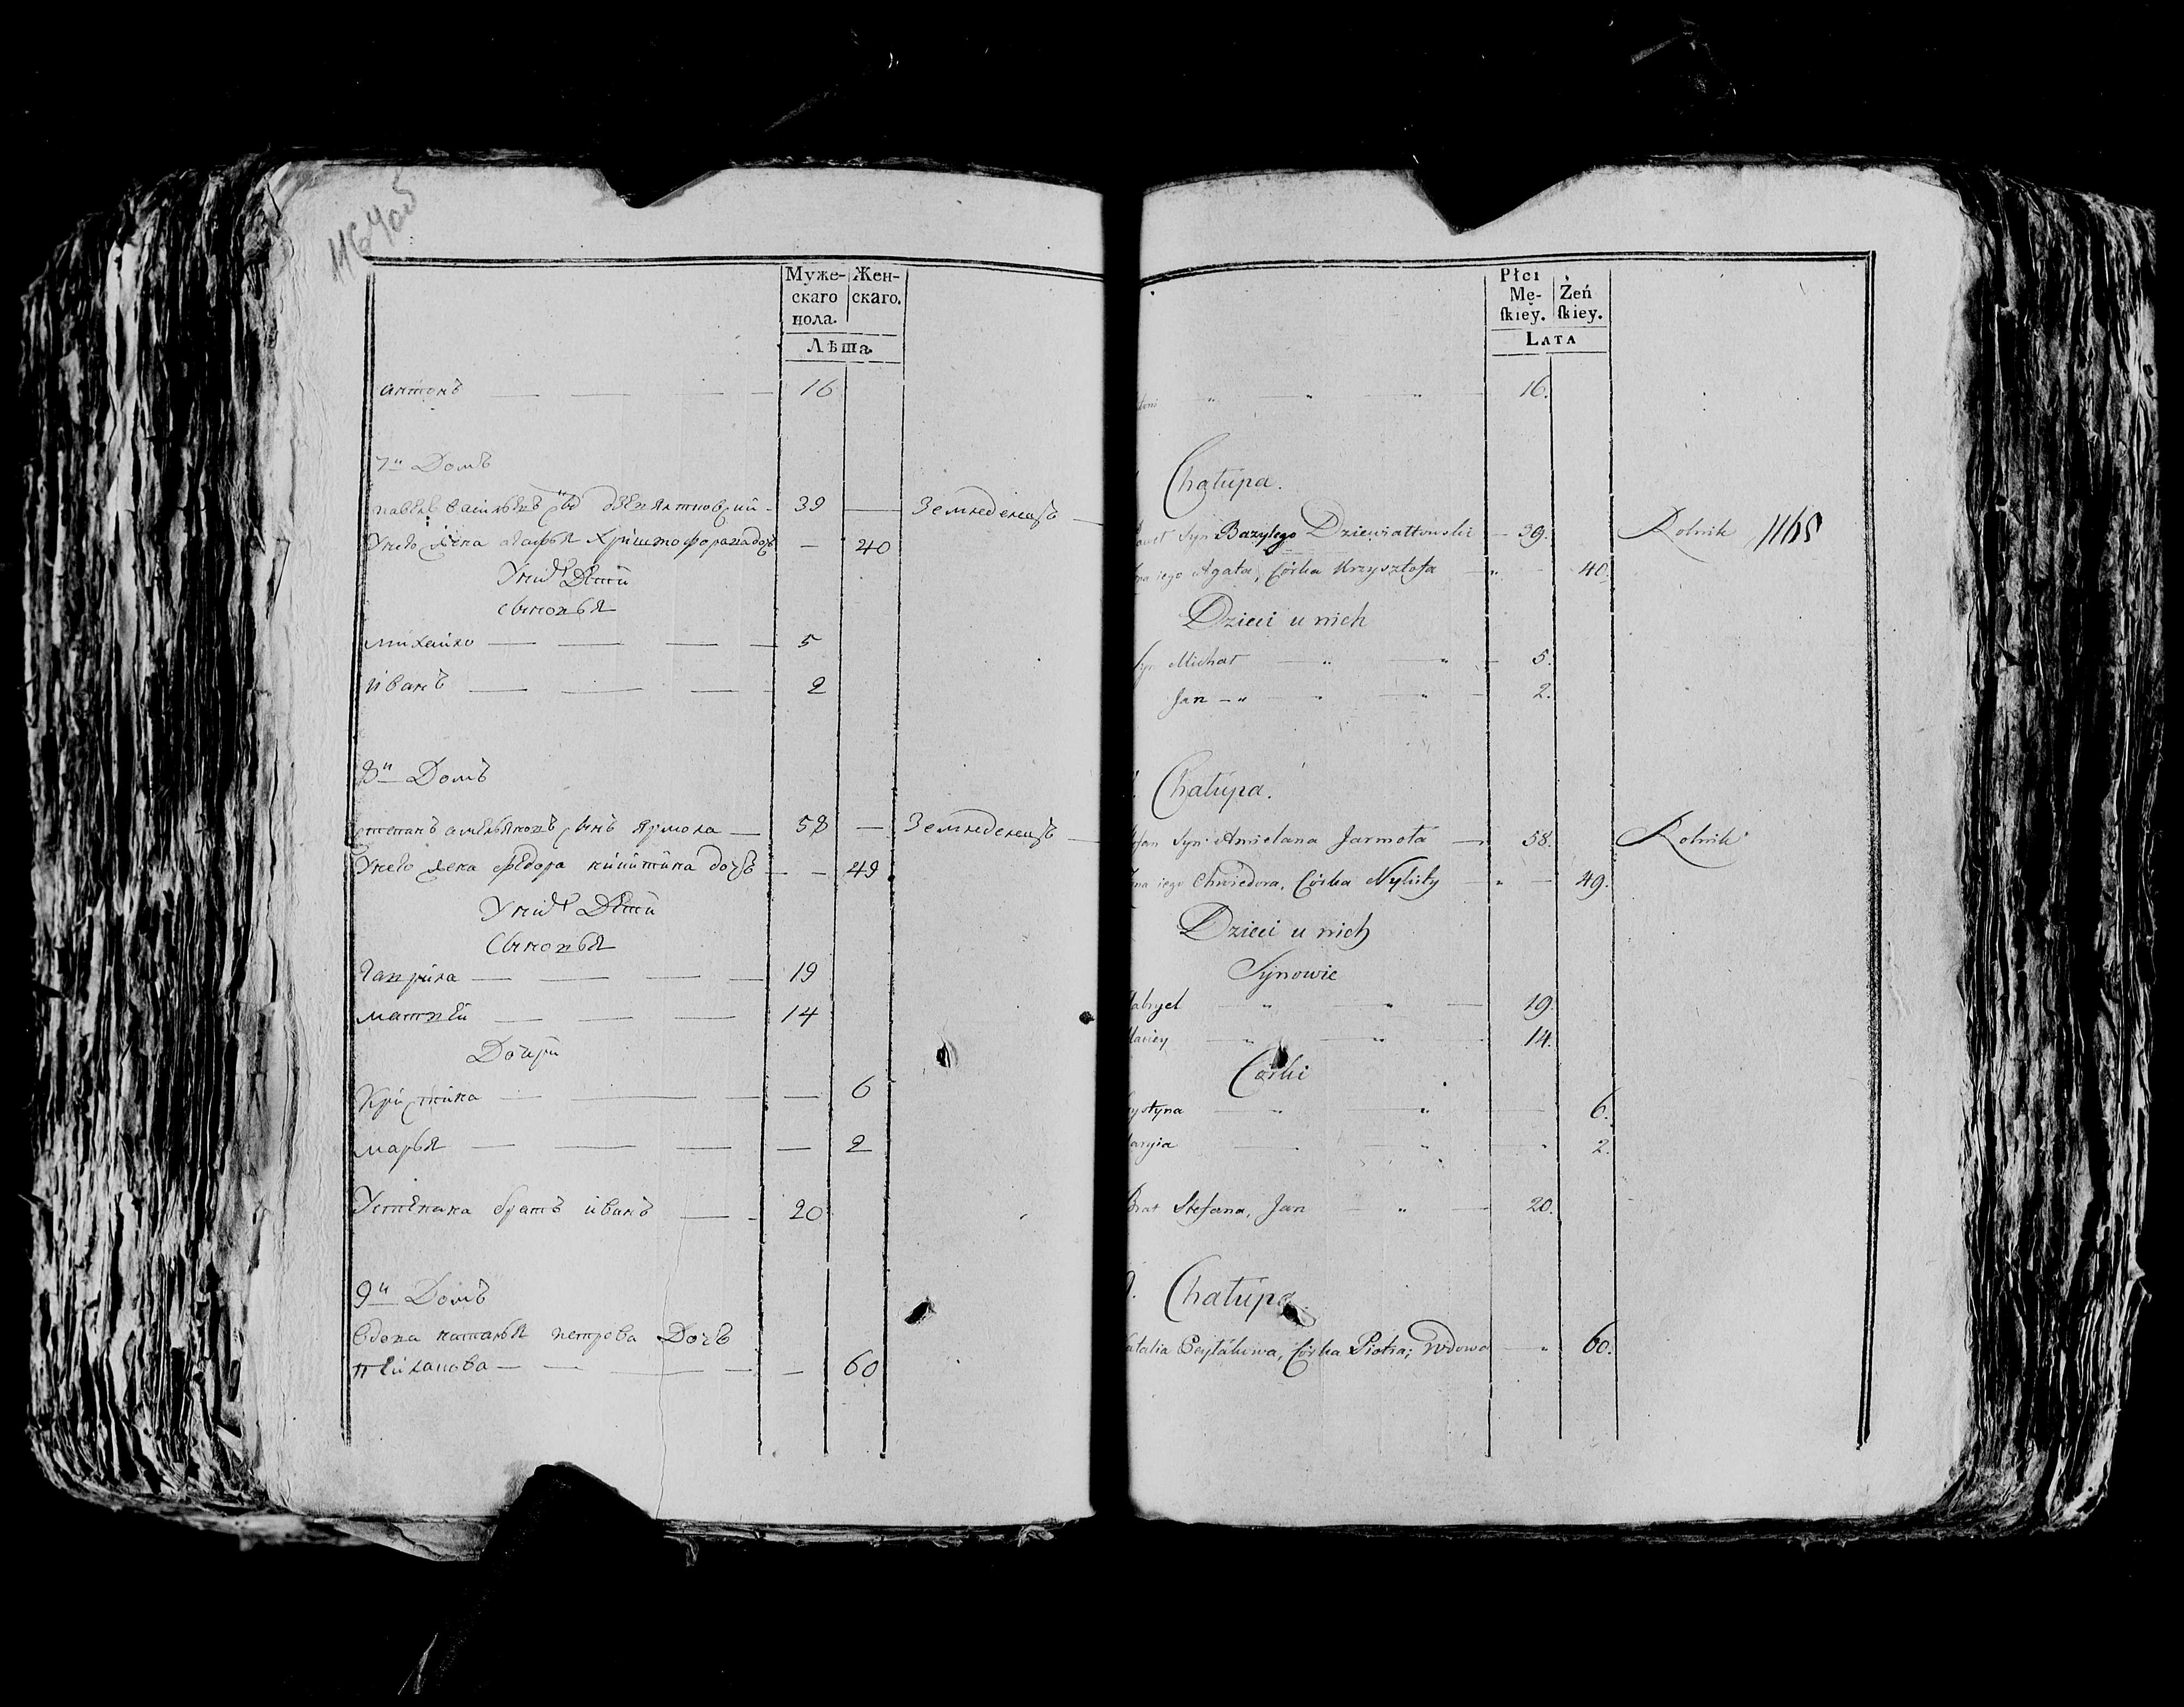 1164 об
Муже- Жен-
скаго скаго.
пола.
Лѣта
антонъ — — — — 16
7й Домъ
павелъ васильевъ сынъ дзевялтовский 39 — Земледелецъ
Унего жена агафья Криштофорападочь — 40
Уних Дети
сыновья
михайло — — — — 5
иванъ — — — 2
8й Домъ
степанъ амельяновъ сынъ ярмола — 58 — Земледелецъ
Унего жена федора никитина дочь — — 49
Уних Дети
Сыновья
гаврила — — — — 19
матвей — — — 14
Дочери
Кристина — — — — 6
марья — — — — — 2
Устепана братъ иванъ — — 20
9й Домъ
вдова наталья петрова Дочь
пейлакова — — — — — 60
Płci
Mę- Żeń
skiey. skiey.
Lata
toni 16.
Chałupa.
aweł Syn Bazylego Dziewiałtowski — 39. Rolnik 1165
na iego Agata, Córka Krzysztofa 40.
Dzieci u nich
Syn Michał 5.
Jan 2.
Chałupa.
efan Syn Amielana Jarmoła — 58. Rolnik
na iego Chwiedora, Córka Nykity 49.
Dzieci u nich
Synowie
abryel 19.
aciey 14.
Córki
ystyna 6.
aryia 2.
Brat Stefana, Jan 20.
9. Chałupa.
atalia Peylakowa, Córka Piotra; Wdowa 60.